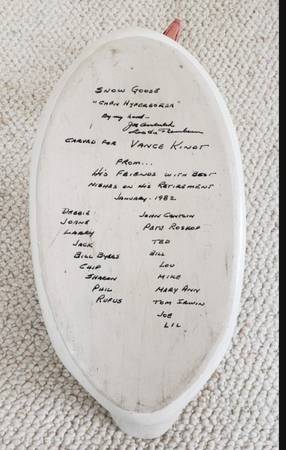 SNOW GOOSE
"CHEN HYPERBOREA"
By my hand—
CARVED FOR VANCE KINDT
FROM...
HIS FRIENDS WITH BEST
WISHES ON HIS RETIREMENT
JANUARY - 1982
DEBBIE
JOANE
LARRY
JACK
BILL BYERS
CHIP
SHARON
PHIL
RUFUS
JOHN
PETE ROSKOP
TED
BILL
LOU
MIKE
MARY ANN
TOM IRWIN
JOE
LIL